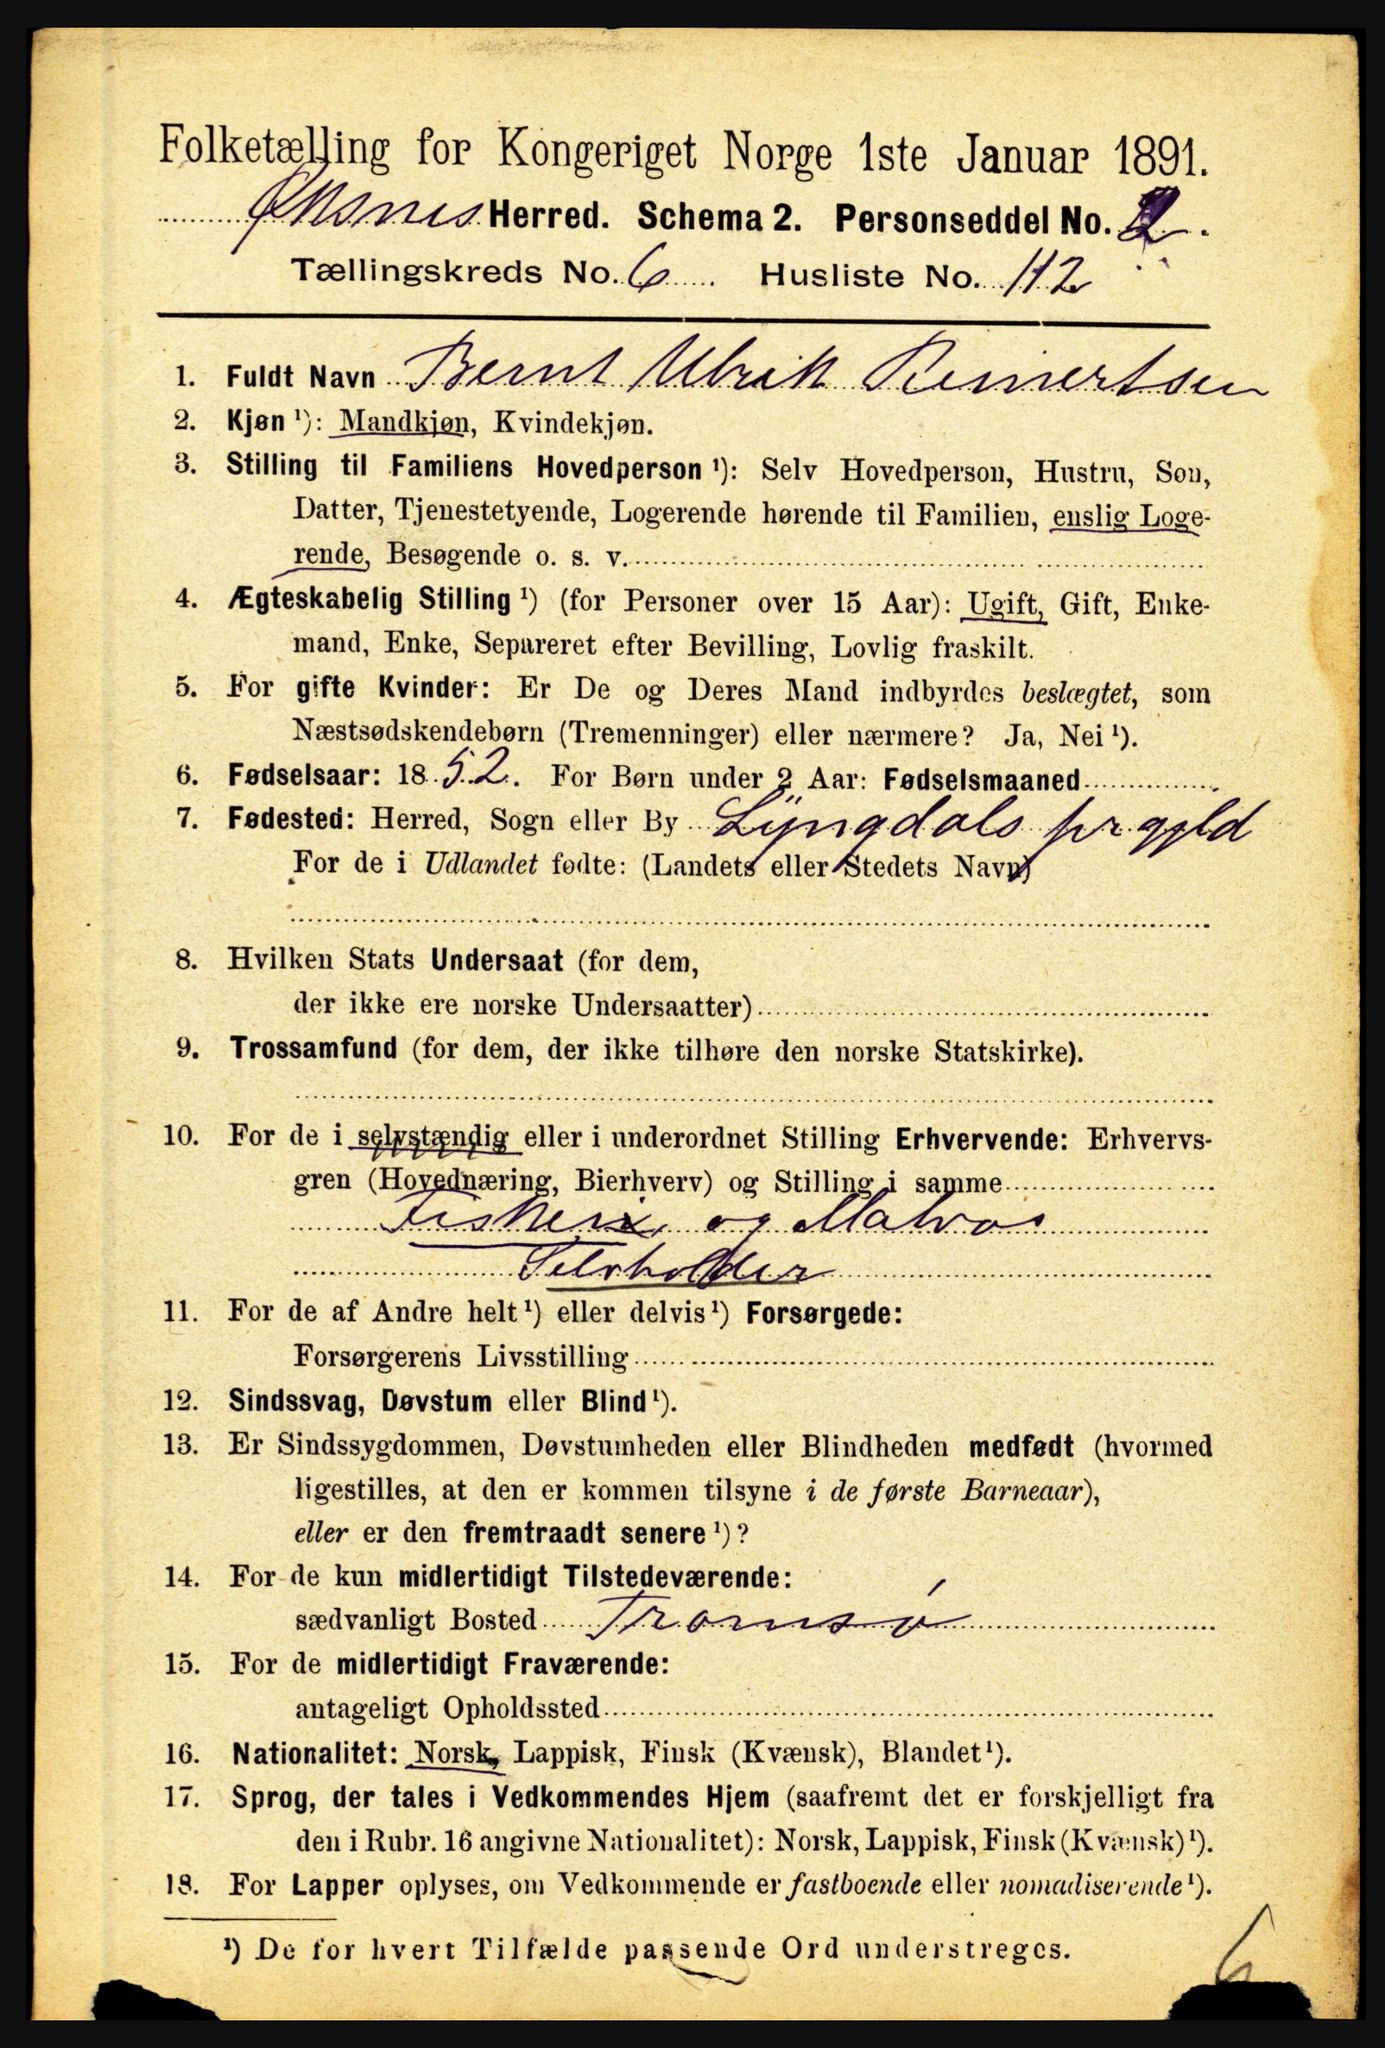 Folketælling for Kongeriget Norge 1ste Januar 1891.
Øksnes Herred. Schema 2. Personseddel No. 2.
Tællingskreds No. 6 Husliste No. 112
1. Fuldt Navn Bernt Ulrik Reinertsen
2. Kjøn ¹): Mandkjøn, Kvindekjøn.
3. Stilling til Familiens Hovedperson ¹): Selv Hovedperson, Hustru, Søn,
Datter, Tjenestetyende, Logerende hørende til Familien, enslig Loge-
rende, Besøgende o. s. v.
4. Ægteskabelig Stilling ¹) (for Personer over 15 Aar): Ugift, Gift, Enke-
mand, Enke, Separeret efter Bevilling, Lovlig fraskilt.
5. For gifte Kvinder: Er De og Deres Mand indbyrdes beslægtet, som
Næstsødskendebørn (Tremenninger) eller nærmere? Ja, Nei ¹).
6. Fødselsaar: 1852. For Børn under 2 Aar: Fødselsmaaned
7. Fødested: Herred, Sogn eller By Lyngdals prgjld
For de i Udlandet fødte: (Landets eller Stedets Navn)
8. Hvilken Stats Undersaat (for dem,
der ikke ere norske Undersaatter)
9. Trossamfund (for dem, der ikke tilhøre den norske Statskirke).
10. For de i selvstændig eller i underordnet Stilling Erhvervende: Erhvervs-
gren (Hovednæring, Bierhverv) og Stilling i samme
Fisker, og Matros
11. For de af Andre helt ¹) eller delvis ¹) Forsørgede:
Forsørgerens Livsstilling
12. Sindssvag, Døvstum eller Blind ¹).
13. Er Sindssygdommen, Døvstumheden eller Blindheden medfødt (hvormed
ligestilles, at den er kommen tilsyne i de første Barneaar),
eller er den fremtraadt senere ¹)?
14. For de kun midlertidigt Tilstedeværende:
sædvanligt Bosted Tromsø
15. For de midlertidigt Fraværende:
antageligt Opholdssted
16. Nationalitet: Norsk, Lappisk, Finsk (Kvænsk), Blandet ¹).
17. Sprog, der tales i Vedkommendes Hjem (saafremt det er forskjelligt fra
den i Rubr. 16 angivne Nationalitet): Norsk, Lappisk, Finsk (Kvænsk) ¹).
18. For Lapper oplyses, om Vedkommende er fastboende eller nomadiserende ¹).
¹) De for hvert Tilfælde passende Ord understreges.
6